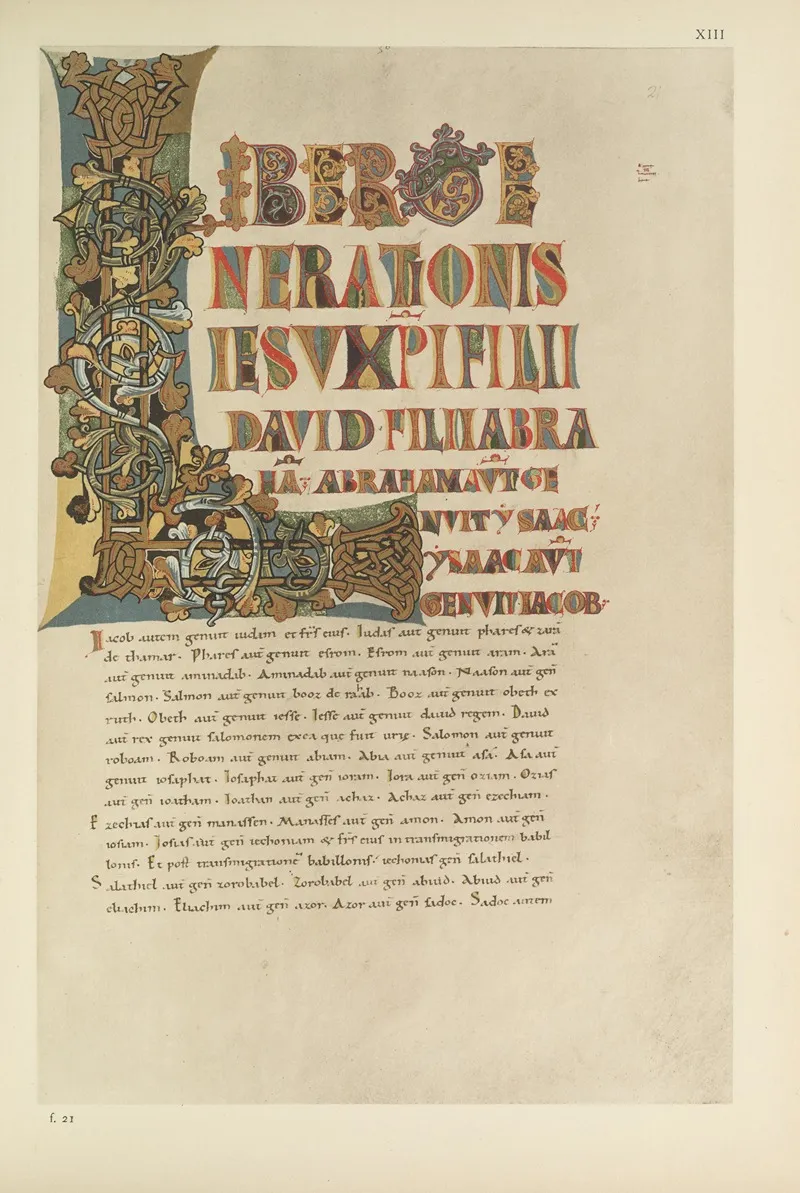 XIII
21
LIBER GE
NERATIONIS
IESV XPI FILII
DAVID · FILII ABRA
HĀ; ABRAHAM AVT̄ GE
NVIT ẎSAAC;
ẎSAAC AVT̄
GENVIT IACOB·
Iacob autem genuit iudam et fr̄s eius. Iudas aut̄ genuit phares & zarā
de thamar. Phares aut̄ genuit esrom. Esrom aut̄ genuit aram. Arā
aut̄ genuit aminadab. Aminadab aut̄ genuit naason. Naason aut̄ geñ
salmon. Salmon aut̄ genuit booz de rahab. Booz aut̄ genuit obeth ex
ruth. Obeth aut̄ genuit iesse. Iesse aut̄ genuit dauid regem. Dauid
aut̄ rex genuit salomonem ex ea que fuit urię. Salomon aut̄ genuit
roboam. Roboam aut̄ genuit abiam. Abia aut̄ genuit asa. Asa aut̄
genuit iosaphat. Iosaphat aut̄ geñ ioram. Iorā aut̄ geñ oziam. Ozias
aut̄ geñ ioatham. Ioathan aut̄ geñ achaz. Achaz aut̄ geñ ezechiam.
Ezechias aut̄ geñ manassen. Manasses aut̄ geñ amon. Amon aut̄ geñ
iosiam. Iosias aut̄ geñ iechoniam & fr̄s eius in transmigrationem babil
lonis. Et post transmigrationē babillonis. iechonias geñ salathiel.
Salathiel aut̄ geñ zorobabel. Zorobabel aut̄ geñ abiud. Abiud aut̄ geñ
eliachim. Eliachim aut̄ geñ azor. Azor aut̄ geñ sadoc. Sadoc autem
f. 21